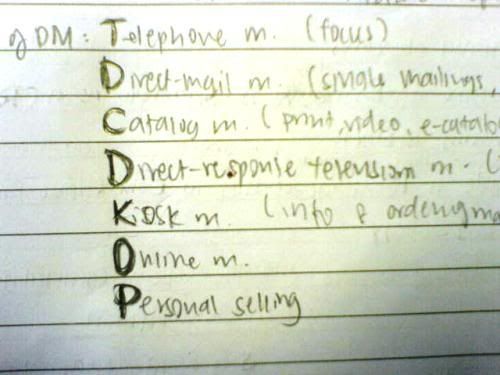 of DM: Telephone m. (focus)
Direct-mail m. (single mailings,
Catalog m. (print, video, e-catalo
Direct-response television m. (
Kiosk m. (info & ordering ma
Online m.
Personal selling